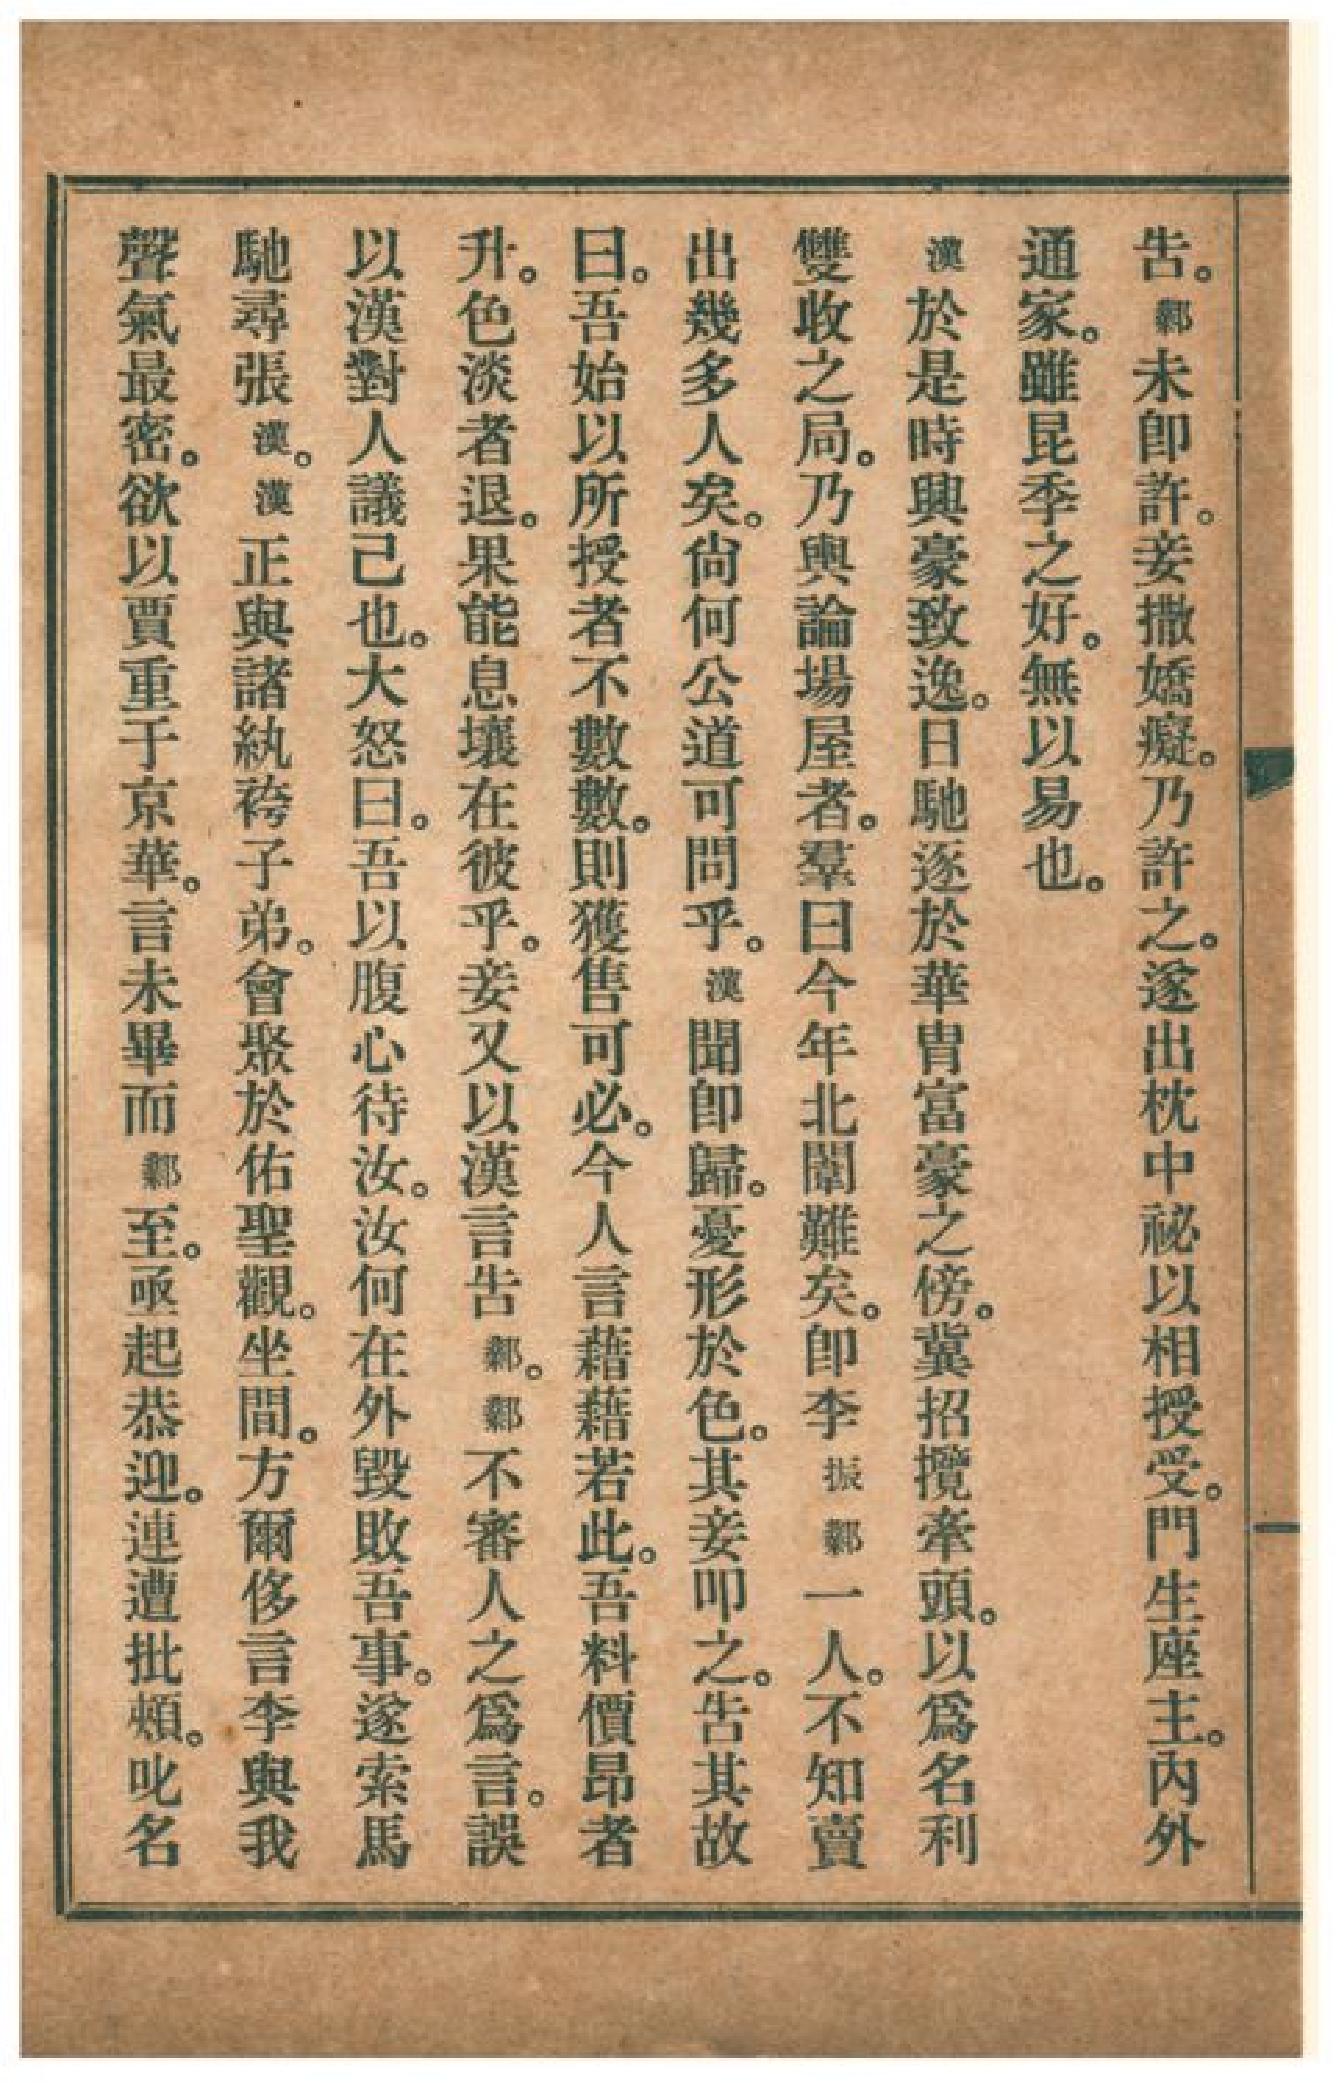 告。鄴未卽許。妾撒嬌癡。乃許之。遂出枕中祕以相授受。門生座主。內外
通家。雖昆季之好。無以易也。
漢於是時興豪致逸。日馳逐於華胄富豪之傍。冀招攬牽頭。以爲名利
雙收之局。乃輿論場屋者。羣曰今年北闈難矣。卽李振鄴一人。不知賣
出幾多人矣。尙何公道可問乎。漢聞卽歸。憂形於色。其妾叩之。告其故
曰。吾始以所授者不數數。則獲售可必。今人言藉藉若此。吾料價昂者
升。色淡者退。果能息壤在彼乎。妾又以漢言告鄴。鄴不審人之爲言。誤
以漢對人議己也。大怒曰。吾以腹心待汝。汝何在外毀敗吾事。遂索馬
馳尋張漢。漢正與諸紈袴子弟。會聚於佑聖觀。坐間。方爾侈言李與我
聲氣最密。欲以賈重于京華。言未畢而鄴至。亟起恭迎。連遭批頰。叱名